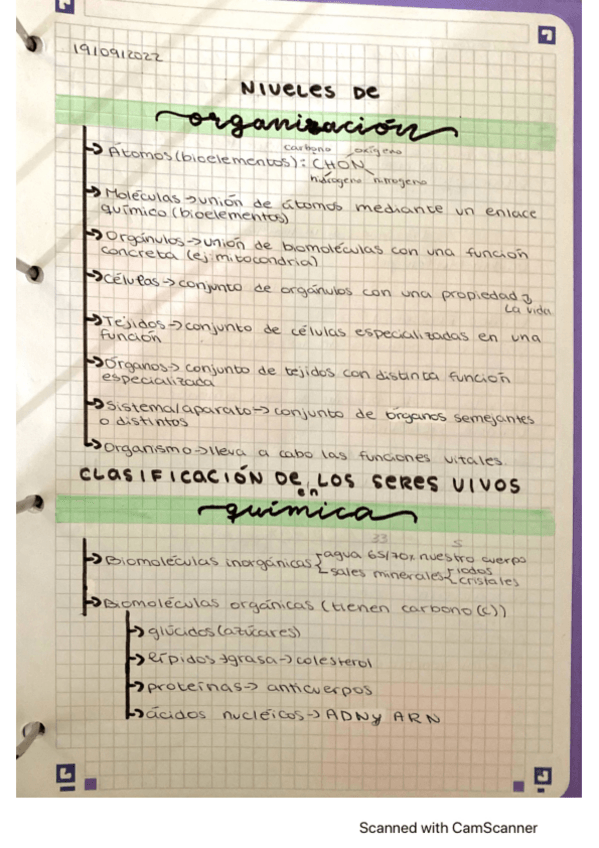 19/09/2022
NIVELES DE
organización
carbono oxígeno
→ Átomos (bioelementos): CHON
hidrógeno nitrogeno
→ Moléculas → unión de átomos mediante un enlace
químico (bioelementos)
→ Orgánulos → unión de biomoléculas con una función
concreta (ej mitocondria)
→ Células → conjunto de orgánulos con una propiedad
La vida
→ Tejidos → conjunto de células especializadas en una
función
→ Órganos → conjunto de tejidos con distinta función
especializada
→ Sistema/aparato → conjunto de órganos semejantes
o distintos
→ Organismo → lleva a cabo las funciones vitales.
CLASIFICACIÓN DE LOS SERES VIVOS
en
química
→ Biomoléculas inorgánicas { agua 65/70% nuestro cuerpo
sales minerales { iodos
cristales
→ Biomoléculas orgánicas (tienen carbono (c))
→ glúcidos (azúcares)
→ lípidos → grasa → colesterol
→ proteínas → anticuerpos
→ ácidos nucléicos → ADN y ARN
Scanned with CamScanner